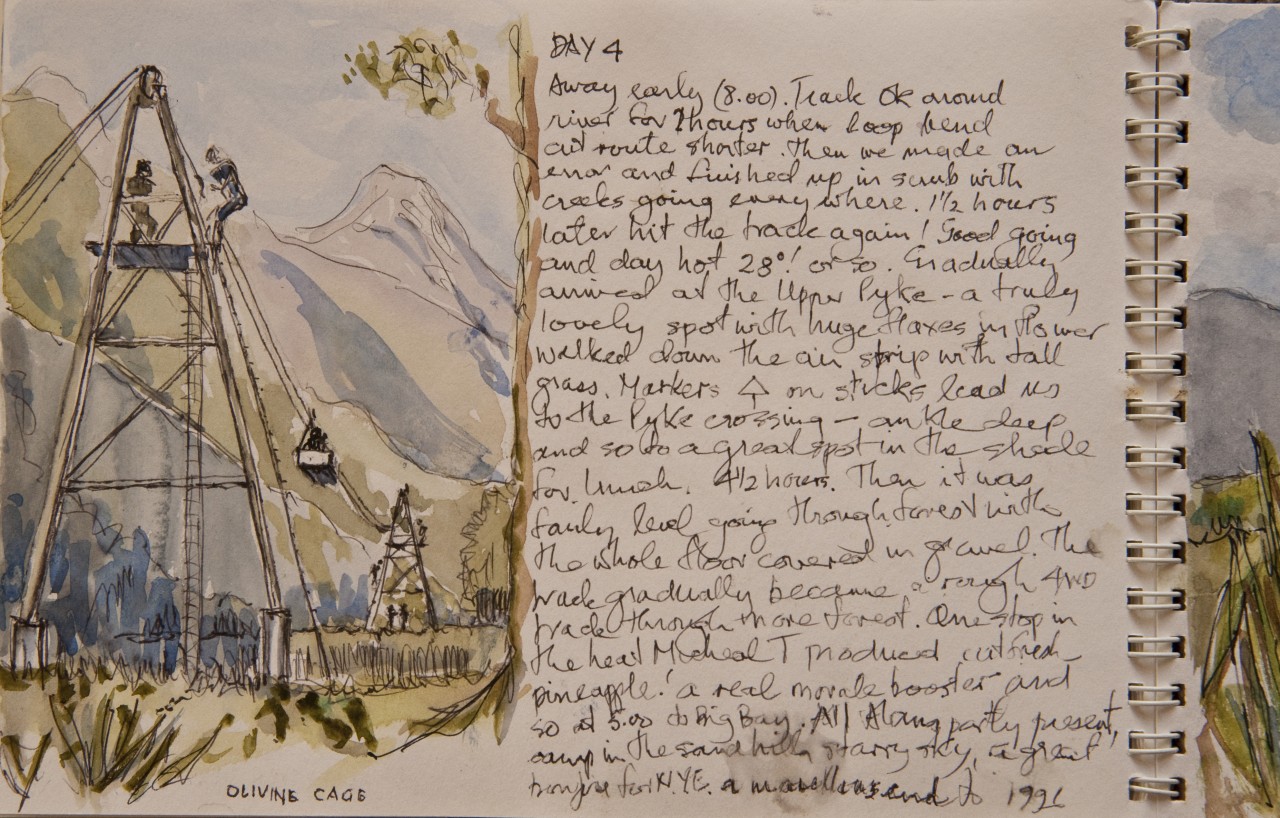 DAY 4
Away early (8.00). Track OK around
river for 2 hours when loop bend
cut route shorter. Then we made an
error and finished up in scrub with
creeks going everywhere. 1½ hours
later hit the track again! Good going
and day hot 28°! or so. Gradually
arrived at the Upper Pyke - a truly
lovely spot with huge flaxes in flower
walked down the air strip with tall
grass. Markers △ on sticks lead us
to the Pyke crossing - ankle deep
and so to a great spot in the shade
for lunch. 4½ hours. Then it was
fairly level going through forest with
the whole floor covered in gravel. The
track gradually became a rough 4WD
track through more forest. One stop in
the heat Micheal T produced cut fresh
pineapple! a real morale booster and
so at 5.00 to Big Bay. All party present,
camp in the sand hills, starry sky, a great
bonfire for N.Y.E. a marvellous end to 1996
OLIVINE CAGE